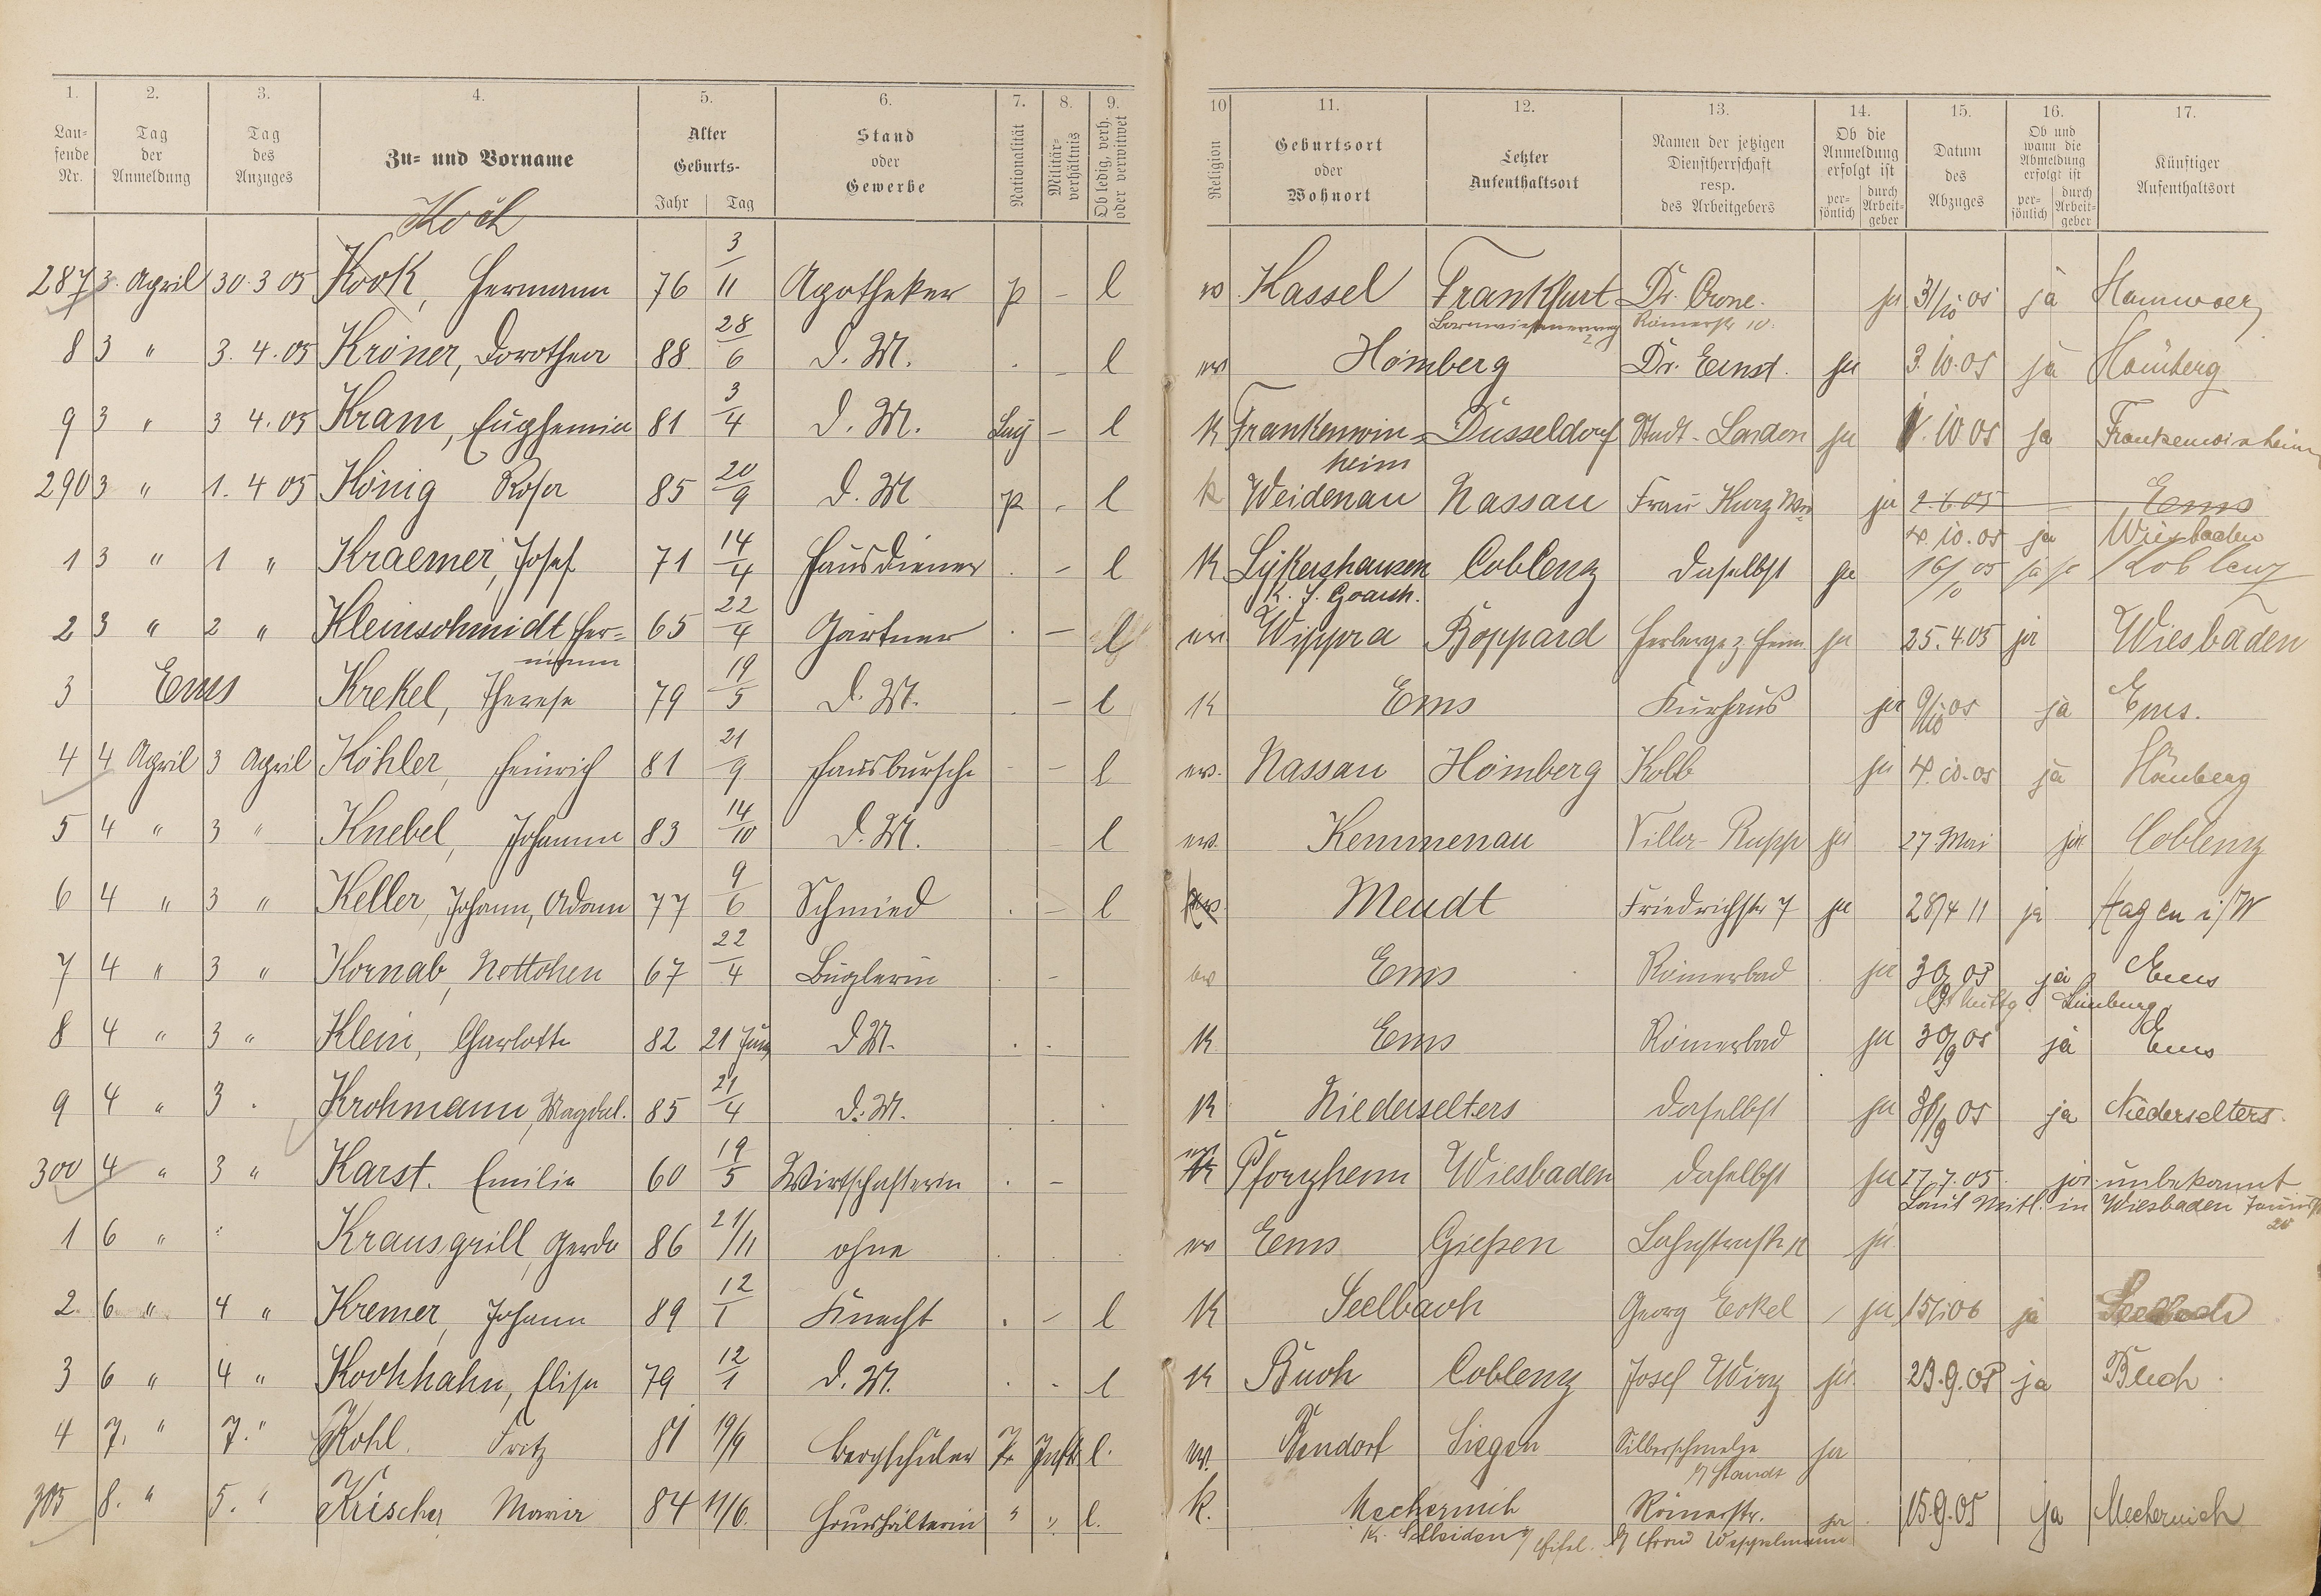 1. 2. 3. 4. 5. 6. 7. 8. 9. 10 11. 12. 13. 14. 15. 16. 17.
Lau-
fende
Nr.
Tag
der
Anmeldung
Tag
des
Anzuges
Zu- und Vorname
Alter
Geburts-
Jahr Tag
Stand
oder
Gewerbe
Nationalität
Militär-
verhältnis
Ob ledig, verh.
oder verwitwet
Religion
Geburtsort
oder
Wohnort
Letzter
Aufenthaltsort
Namen der jetzigen
Dienstherrschaft
resp.
des Arbeitgebers
Ob die
Anmeldung
erfolgt ist
per-
sönlich
durch
Arbeit-
geber
Datum
des
Abzuges
Ob und
wann die
Abmeldung
erfolgt ist
per-
sönlich
durch
Arbeit-
geber
Künftiger
Aufenthaltsort
Koch
287 3. April 30.3 05 Kock, Hermann 76 3/11 Apotheker p – l ev Kassel Frankfurt Dr. Crone. ja 31/10 05 ja
Römerstr 10.
8 3 " 3. 4. 05 Kröner, Dorothea 88 28/6 D. M. . – l ev Homberg Dr. Ernst. ja 3.10.05 ja Homberg
9 3 " 3 4. 05 Kram, Euphemia 81 3/4 D. M. Bay – l K Frankenwin- Düsseldorf Stadt-London ja 1.10 05 ja Frankenwinheim
heim
290 3 " 1. 4 05 König Rosa 85 20/9 D. M p . l k Weidenau Nassau Frau Kurz Ww ja 2.6.05 Ems
4.10.05 ja Wiesbaden
1 3 " 1 " Kraemer, Josef 71 14/4 Hausdiener . – l K Lykershausen Coblenz daselbst ja 16/10 05 ja Koblenz
K. S. Goarsh.
2 3 " 2 " Kleinschmidt Her- 65 22/4 Gärtner . – l ev Wippra Boppard Herberge z Heim ja 25.4.05 ja Wiesbaden
mann
3 Ems Krekel, Therese 79 19/5 D. M. . – l K Ems Kurhaus ja 9/10 05 ja Ems.
4 4 April 3 April Köhler, Heinrich 81 21/9 Hausbursche – – l ev. Nassau Homberg Kolb ja 4.10.05 ja Homberg
5 4 " 3 " Knebel, Johanna 83 14/10 D. M. – l ev. Kemmenau Villa-Rupp ja 27. Mai ja Coblenz
6 4 " 3 " Keller, Johann, Adam 77 9/6 Schmied . – l Meudt Friedrichstr 7 ja 28/4 11 ja Hagen i/W
7 4 " 3 " Kornab, Nettchen 67 22/4 Büglerin . – ev Ems Römerbad ja 30/9 05 ja Ems
Limburg
8 4 " 3 " Klein, Charlotte 82 21 Juni D M. . . K Ems Römerbad ja 30/9 05 ja Ems
9 4 " 3 . Krohmann, Magdal. 85 21/4 D. M. . . K Niederselters daselbst ja 30/9 05 ja Niederselters.
300 4 " 3 " Karst. Emilie 60 19/5 Wirtschafterin . – ev K Pforzheim Wiesbaden daselbst ja 17.7.05. ja unbekannt
Laut Mitl. in Wiesbaden
1 6 " " Krausgrill, Gerda 86 21/11 ohne . . ev Ems Giessen ja
2 6 " 4 " Kremer, Johann 89 12/1 Knecht . – l K Seelbach Georg Eckel ja 15/1 06 ja Seelbach
3 6 " 4 " Kochhahn, Elise 79 12/1 D. M. . . l K Buch Coblenz Josef Wirz ja 23.9.05 ja Buch
4 7. " 7. " Kohl. Fritz 81 19/9 Bergschüler Pr l. ev. Siegen Silberschmelze ja
305 8. " 5. " Krischer Maria 84 11/6. Haushälterin " " l. k. Mechernich Römerstr. ja 15.9.05 ja Mechernich
K. Schleiden / Eifel.